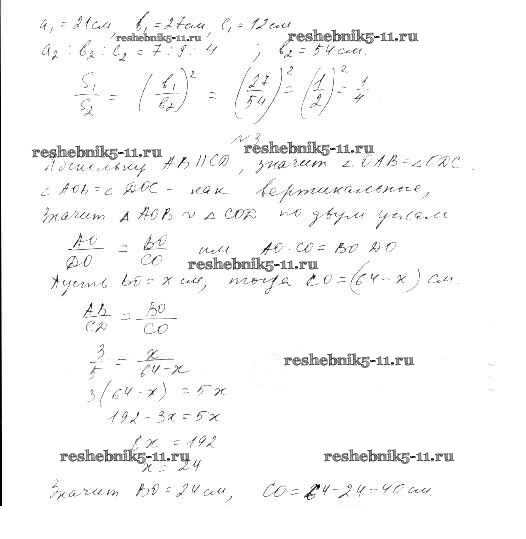 a₁ = 21см, b₁ = 27см, c₁ = 12см
reshebnik5-11.ru
reshebnik5-11.ru
a₂ : b₂ : c₂ = 7 : 9 : 4 ; b₂ = 54 см.
S₁/S₂ = (b₁/b₂)² = (27/54)² = (1/2)² = 1/4
№3
reshebnik5-11.ru
reshebnik5-11.ru
Поскольку AB || CD, значит ∠OAB = ∠ODC.
∠AOB = ∠DOC - как вертикальные,
Значит △AOB ~ △COD по двум углам
AO/DO = BO/CO или AO·CO = BO·DO
reshebnik5-11.ru
Пусть BO = x см, тогда CO = (64-x) см.
AB/CD = BO/CO
3/5 = x/64-x
reshebnik5-11.ru
3(64-x) = 5x
192-3x=5x
8x = 192
reshebnik5-11.ru
reshebnik5-11.ru
x = 24
Значит BO = 24 см, CO = 64-24=40 см